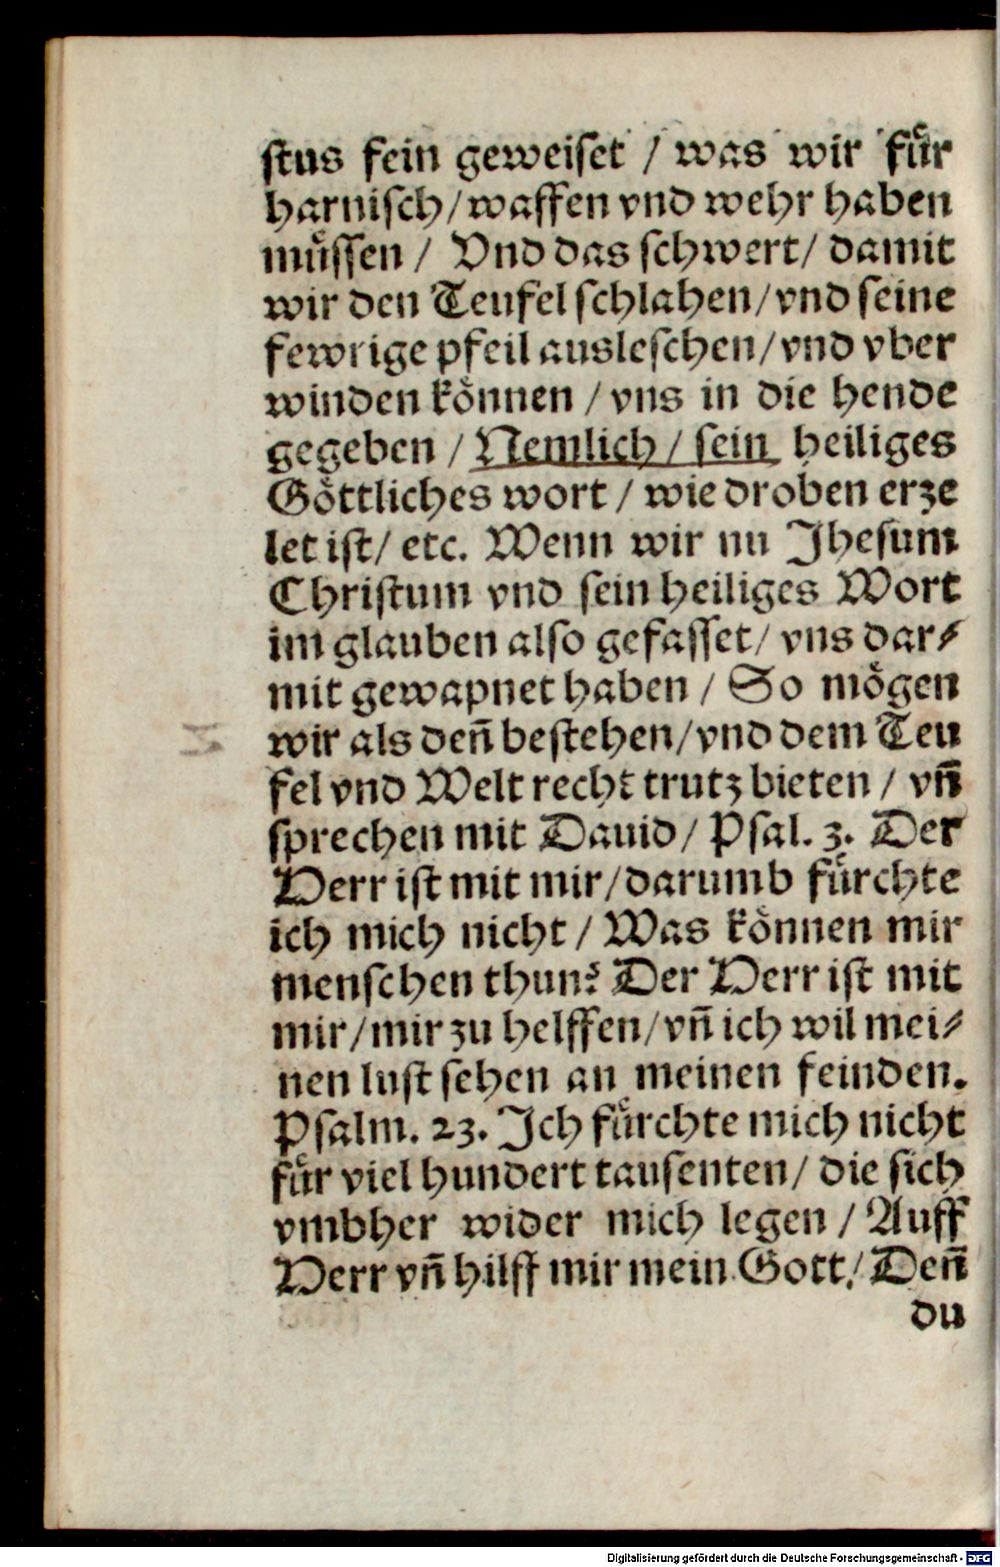 stus fein geweiset / was wir fuͤr
harnisch/waffen vnd wehr haben
muͤssen / Vnd das schwert/ damit
wir den Teufel schlahen/vnd seine
fewrige pfeil ausleschen/vnd vber
winden koͤnnen / vns in die hende
gegeben / Nemlich / sein heiliges
Goͤttliches wort / wie droben erze
let ist/ etc. Wenn wir nu Jhesum
Christum vnd sein heiliges Wort
im glauben also gefasset/ vns dar⸗
mit gewapnet haben / So moͤgen
wir als deñ bestehen/vnd dem Teu
fel vnd Welt recht trutz bieten / vñ
sprechen mit Dauid/ Psal. 3. Der
Herr ist mit mir/darumb fuͤrchte
ich mich nicht / Was koͤnnen mir
menschen thun? Der Herr ist mit
mir/mir zu helffen/vñ ich wil mei⸗
nen lust sehen an meinen feinden.
Psalm. 23. Jch fuͤrchte mich nicht
fuͤr viel hundert tausenten/ die sich
vmbher wider mich legen / Auff
Herr vñ hilff mir mein Gott/ Deñ
du
Digitalisierung gefördert durch die Deutsche Forschungsgemeinschaft - DFG